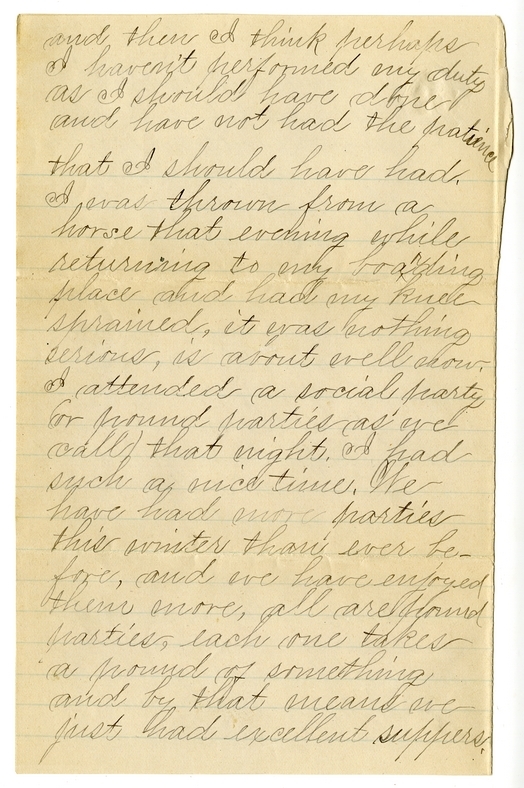 and then I think perhaps
I haven't performed my duty
as I should have done
and have not had the patience
that I should have had.
I was thrown from a
horse that evening while
returning to my boarding
place and had my knee
sprained, it was nothing
serious, is about well now.
I attended a social party
(or pound parties as we
call) that night. I had
such a nice time. We
have had more parties
this winter than ever be-
fore, and we have enjoyed
them more, all are pound
parties, each one takes
a pound of something
and by that means we
just had excellent suppers.